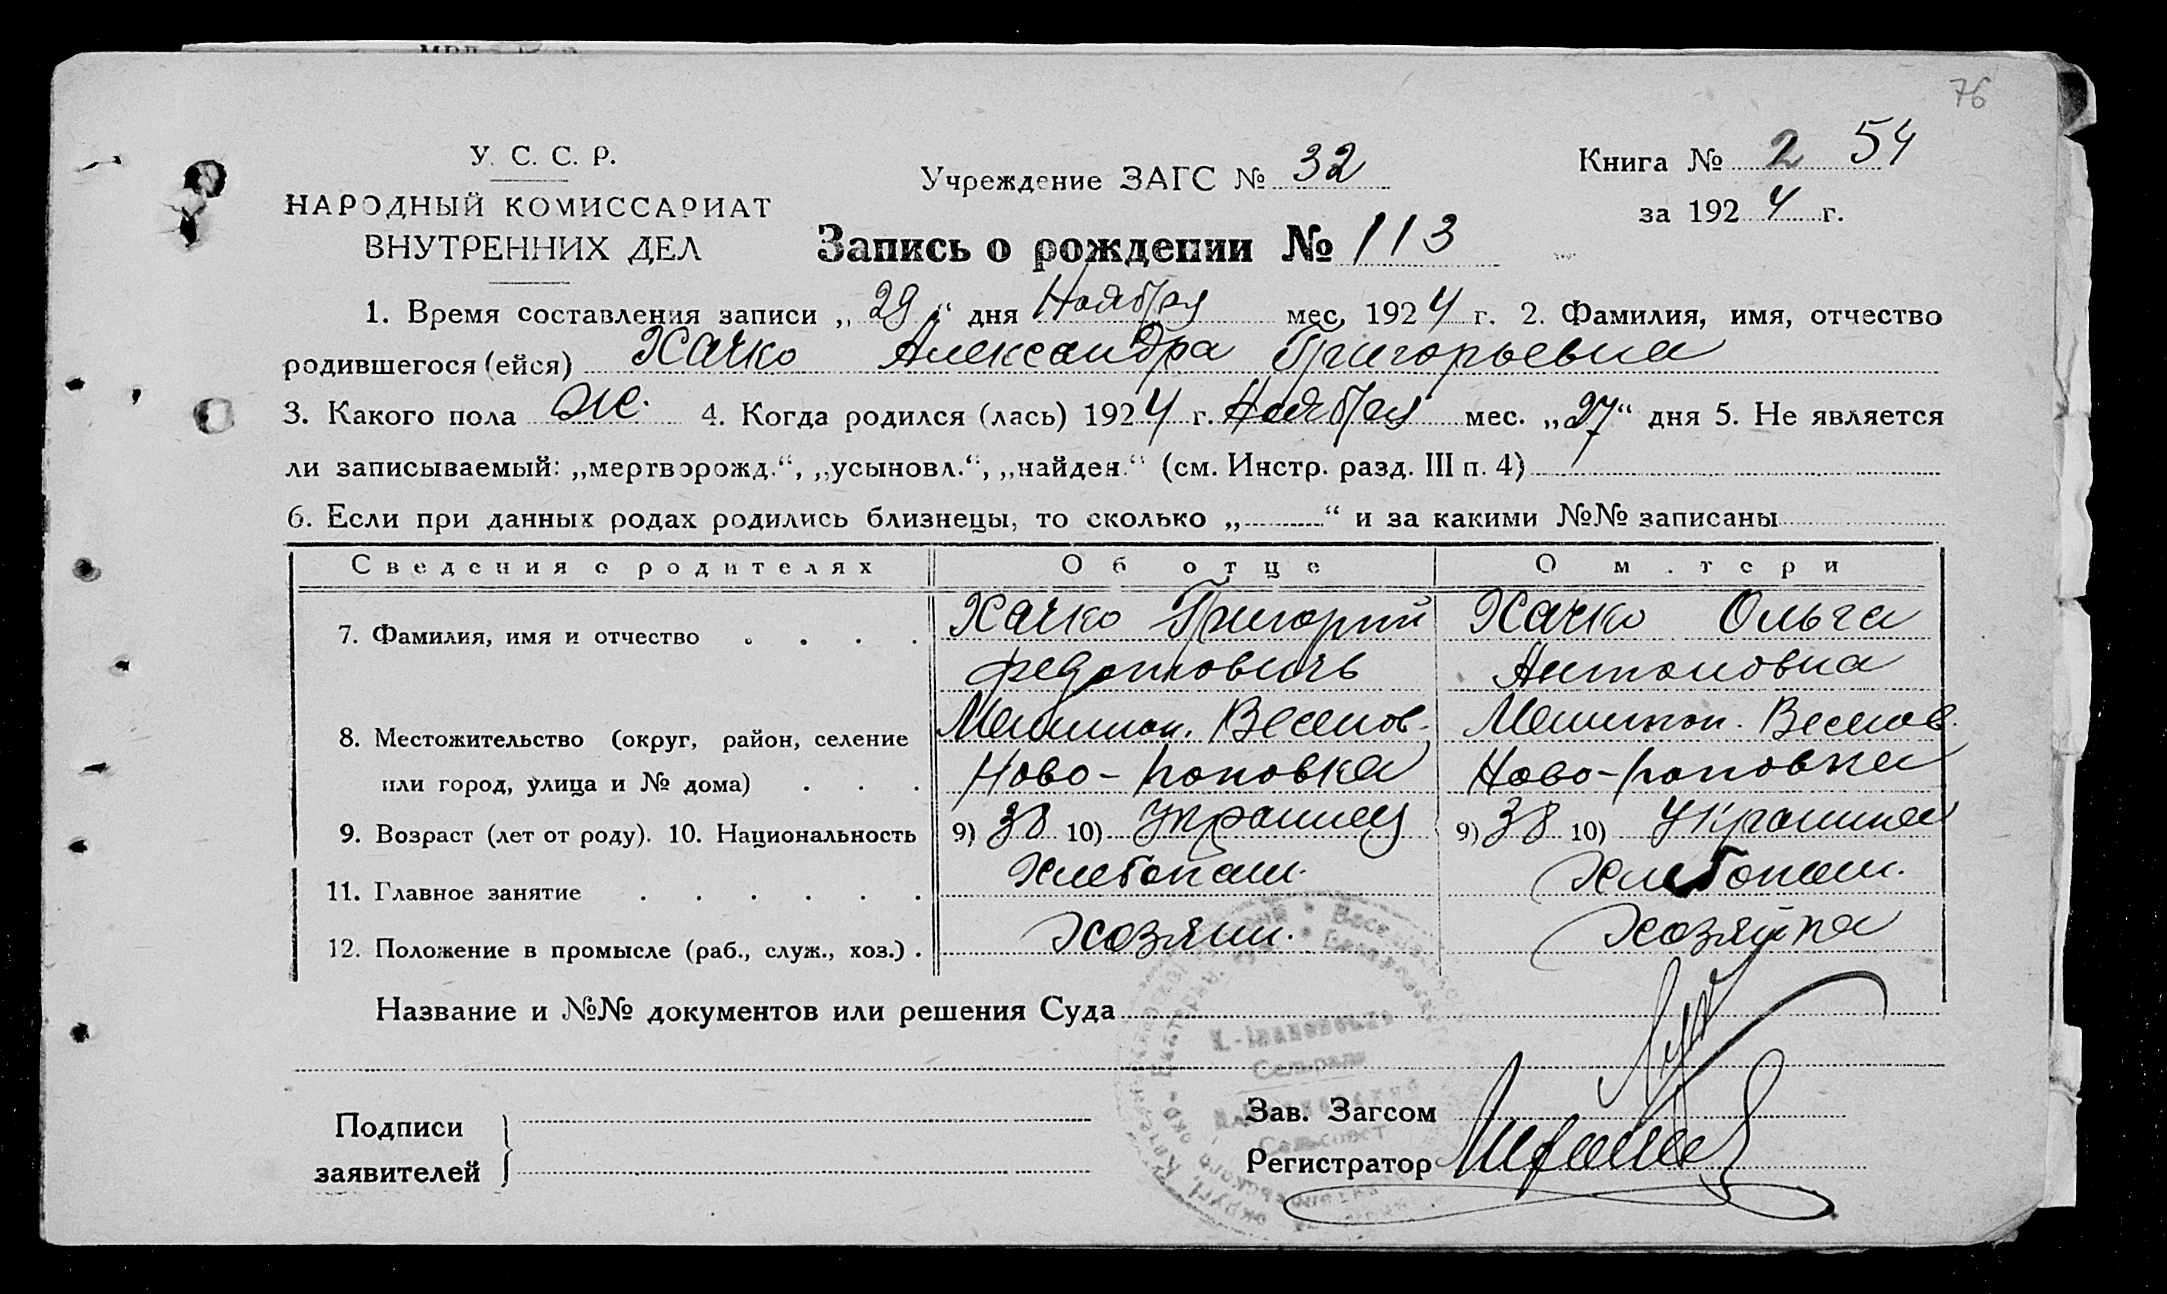 76
У. С. С. Р.
НАРОДНЫЙ КОМИССАРИАТ
ВНУТРЕННИХ ДЕЛ
Учреждение ЗАГС № 32
Книга № 2 54
за 1924 г.
Запись о рождении № 113
1. Время составления записи „29“ дня Ноября мес. 1924 г. 2. Фамилия, имя, отчество
родившегося (ейся) Хачко Александра Григорьевна
3. Какого пола Ж. 4. Когда родился (лась) 1924 г. Ноября мес. „27“ дня 5. Не является
ли записываемый: „мертворожд.“, „усыновл.“, „найден.“ (см. Инстр. разд. III п. 4)
6. Если при данных родах родились близнецы, то сколько „ “ и за какими №№ записаны
Сведения о родителях Об отце О матери
7. Фамилия, имя и отчество . . . . Хачко Григорий Хачко Ольга
Федотовичь Антоновна
8. Местожительство (округ, район, селение Веселов. Веселов.
или город, улица и № дома) . . . Ново-поповка Ново-поповка
9. Возраст (лет от роду). 10. Национальность 9) 38 10) Украинец 9) 38 10) Украинка
11. Главное занятие . . . . . . Хлебопаш. Хлебопаш.
12. Положение в промысле (раб., служ., хоз.) . Хозяин. Хозяйка
Название и №№ документов или решения Суда
Сельрада
Сельсовет
Подписи
заявителей
Зав. Загсом
Регистратор